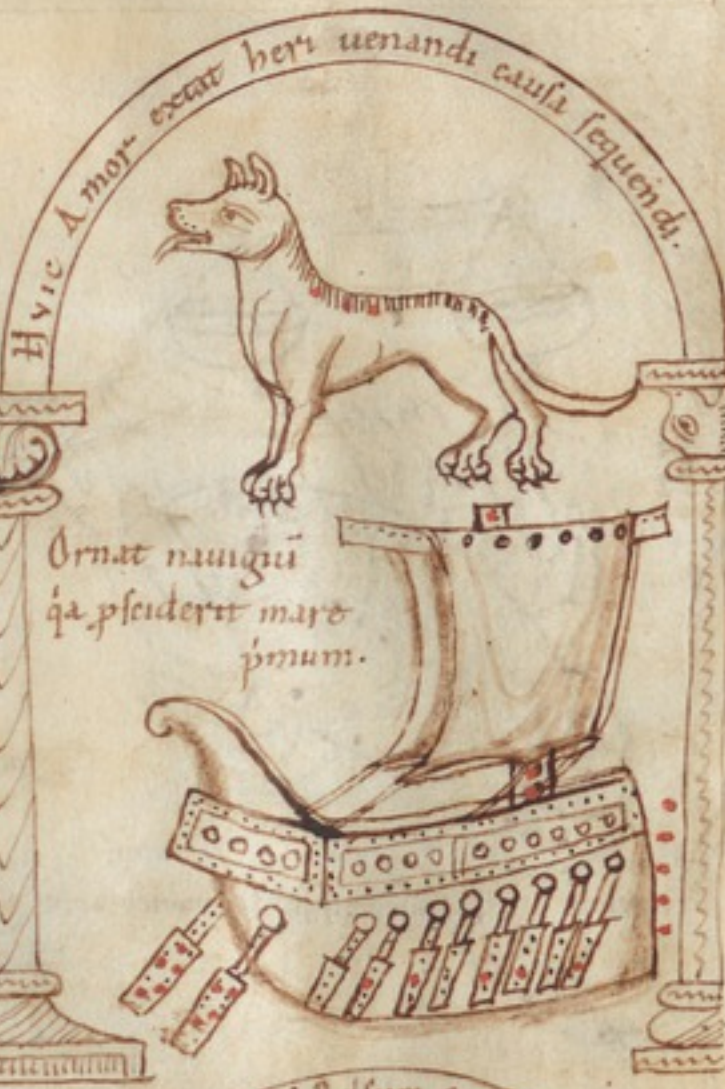 Hvic Amor extat heri uenandi causa sequendi.
Ornat nauigiū
q̇a ꝓsciderit mare
p̍mum.